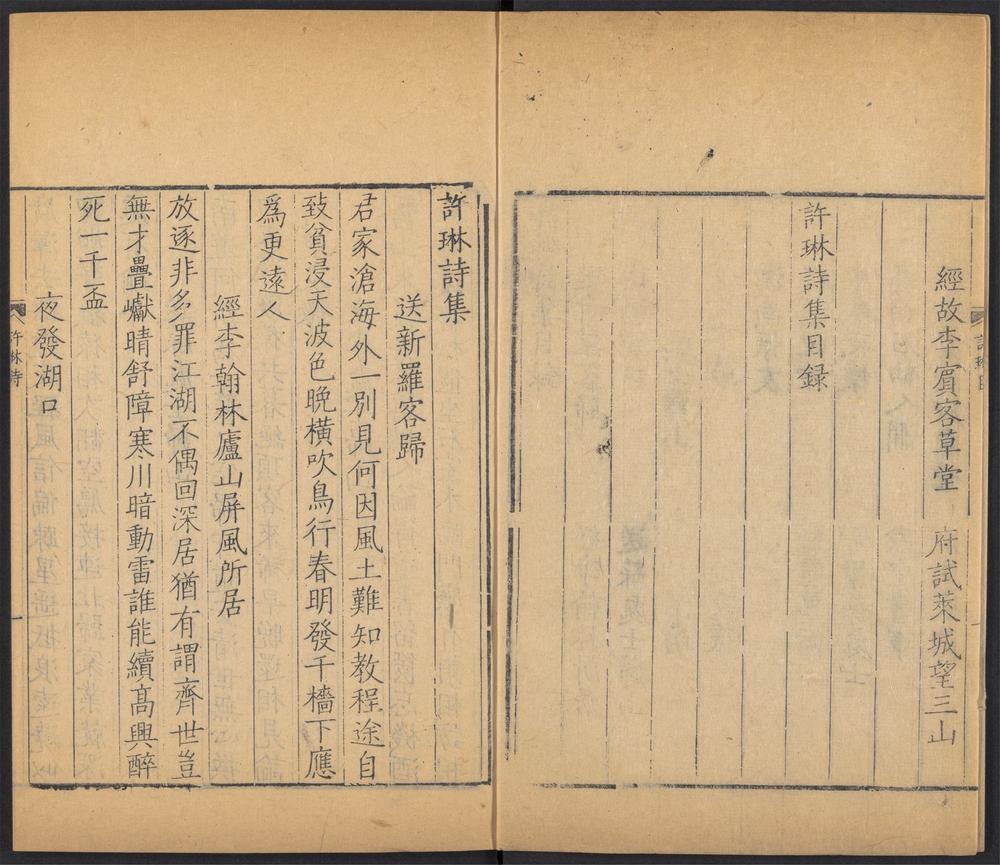 經故李賓客草堂　府試萊城望三山
許琳詩集目録
許琳詩集
送新羅客歸
君家滄海外一別見何因風土難知教程途自
致貧浸天波色晚橫吹鳥行春明發千檣下應
爲更遠人
經李翰林廬山屏風所居
放逐非多罪江湖不偶回深居猶有謂齊世豈
無才疊巘晴舒障寒川暗動雷誰能續高興醉
死一千盃
夜發湖口
許琳詩
一